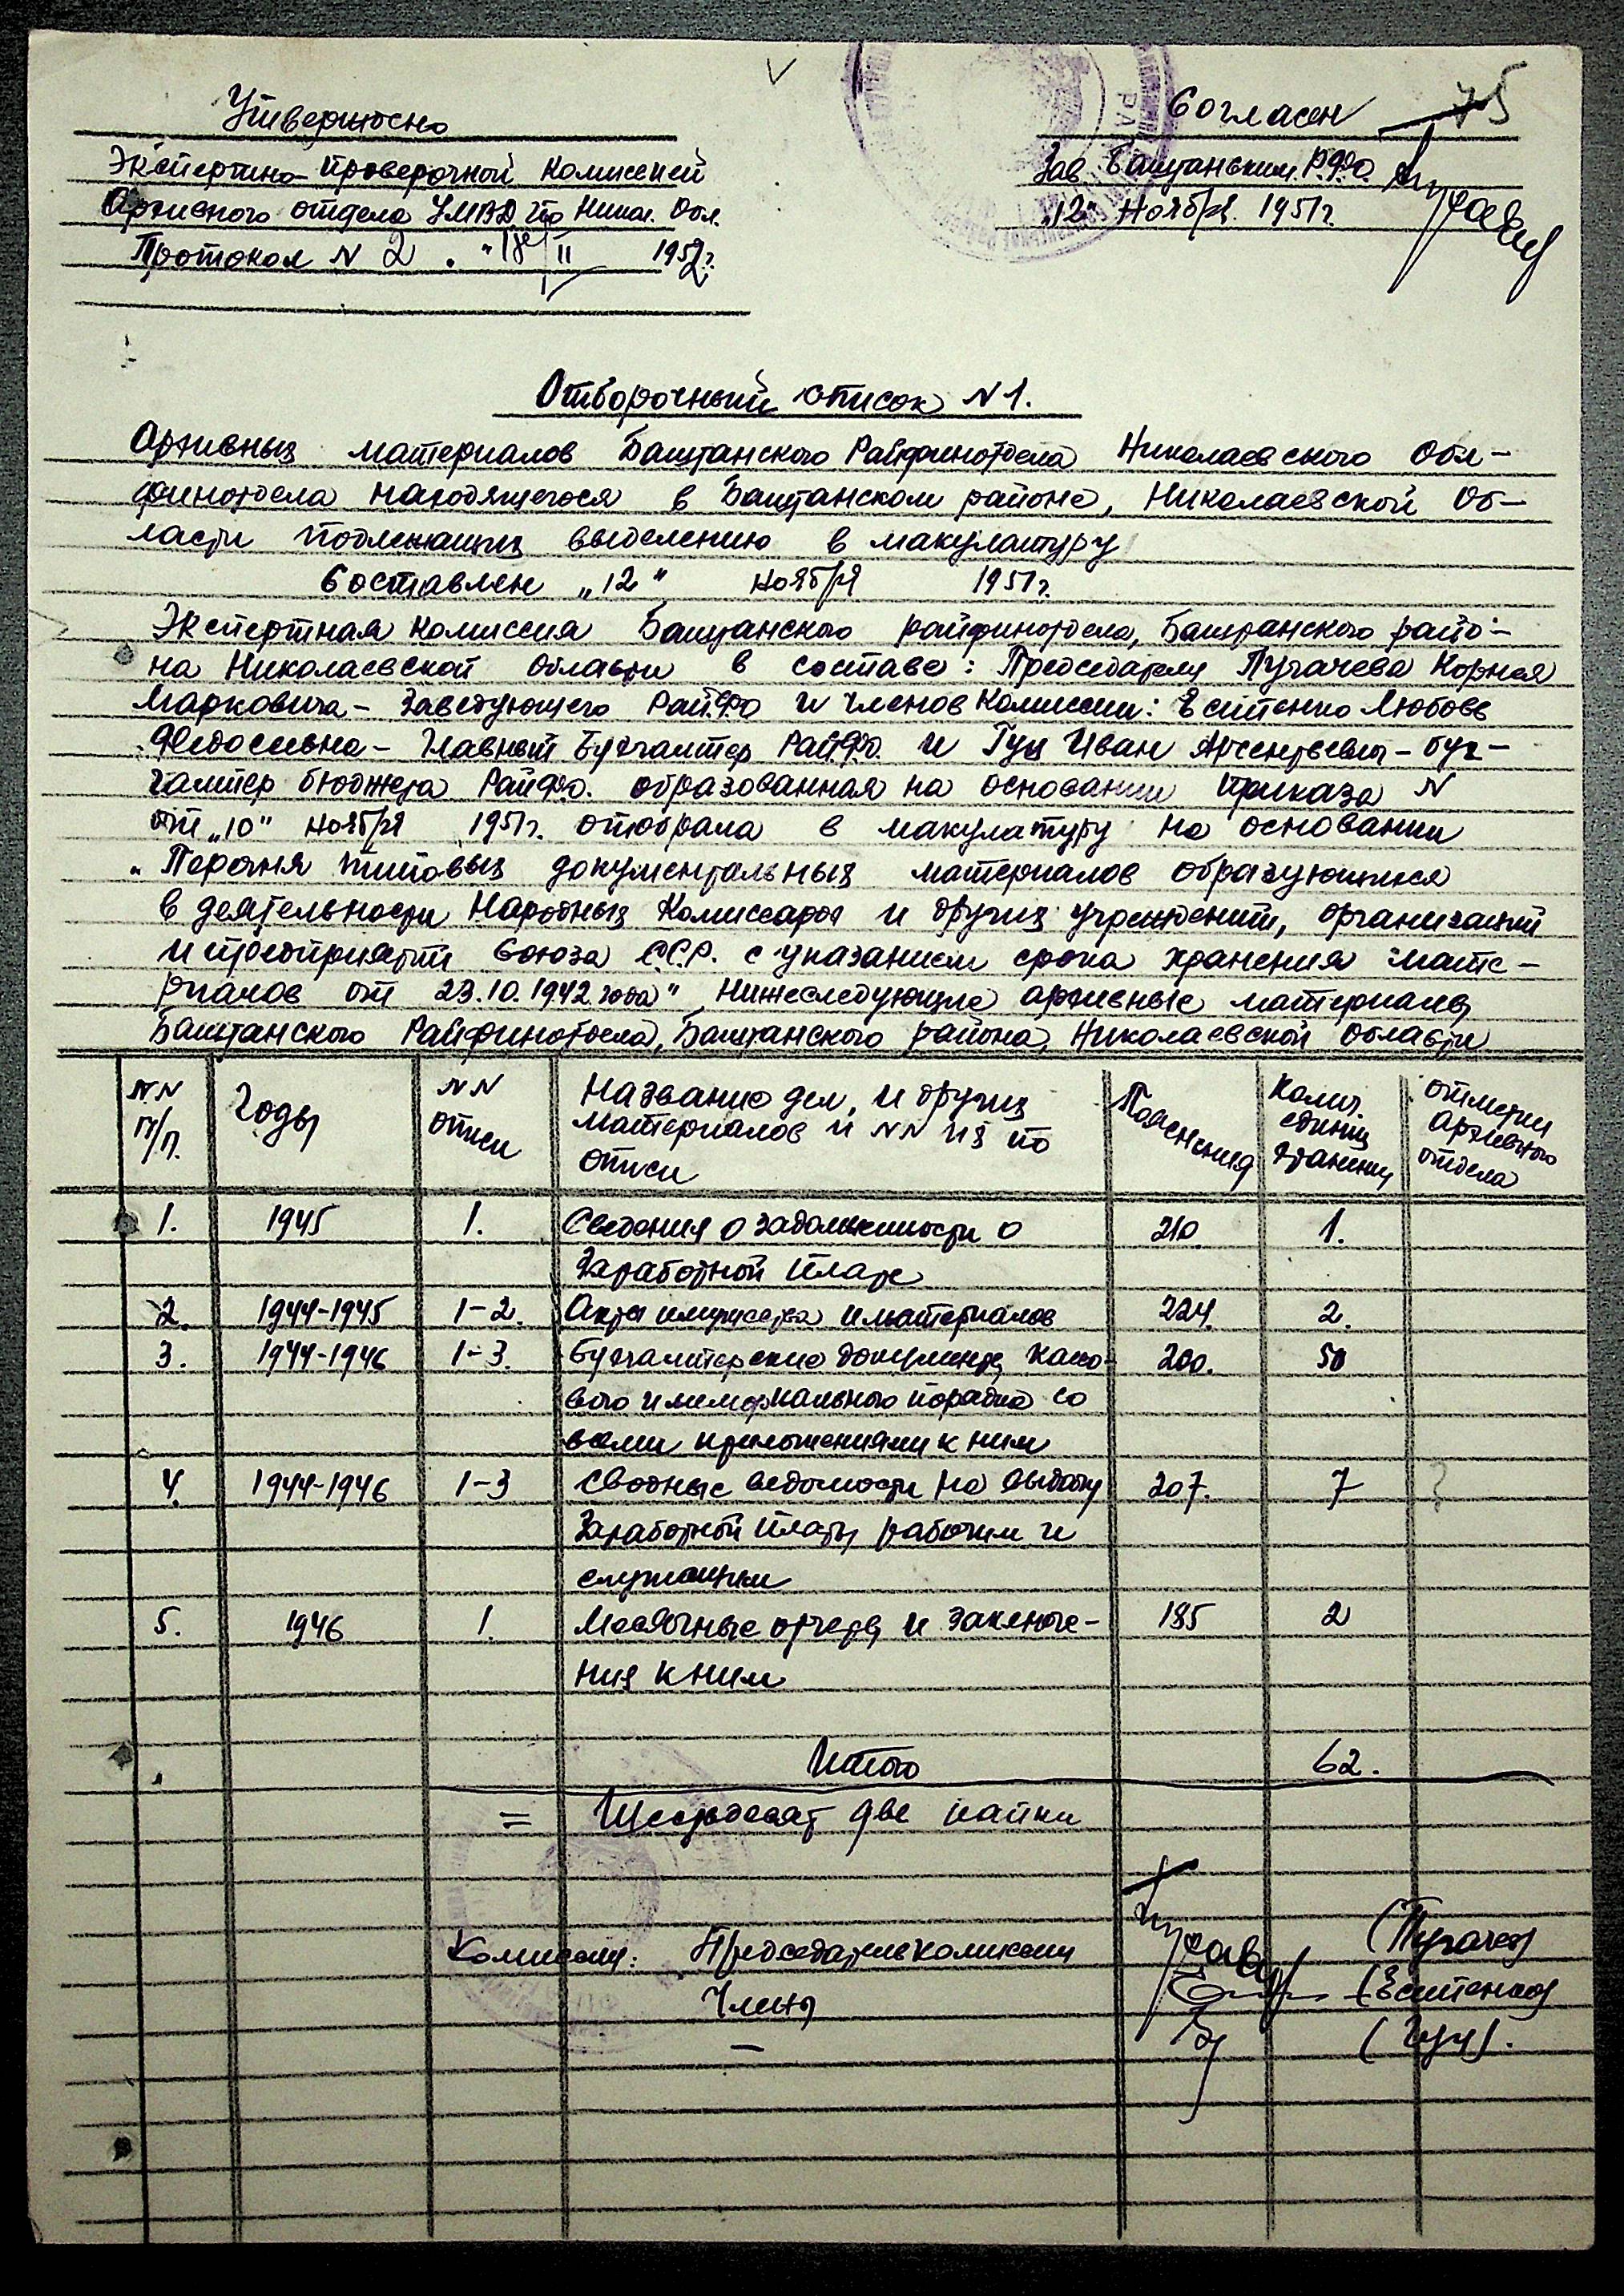 75
Утверждено
Экспертно-проверочной Комиссией
Архивного отдела УМВД по Никол. Обл.
Протокол N 2 . II 1952г.
Согласен
Зав. Баштанским РФО.
"12" Ноября 1951г.
Отборочный список N 1.
Архивных материалов Баштанского Райфинотдела Николаевского Обл-
финотдела находящегося в Баштанском районе, Николаевской Об-
ласти подлежащих выделению в макулатуру
Составлен "12" ноября 1951г.
Экспертная Комиссия Баштанского райфинотдела, Баштанского райо-
на Николаевской области в составе: Председателя Пугачева Корнея
Марковича - Заведующего РайФО и членов Комиссии: Еситенко Любовь
Федосеевна - Главный Бухгалтер РайФО и Гуц Иван Арсентьевич - бух-
галтер бюджета РайФО. образованная на основании приказа N
от "10" ноября 1951г. отобрала в макулатуру на основании
"Перечня типовых документальных материалов образующихся
в деятельности Народных Комиссаров и других учреждений, организаций
и предприятий Союза С.С.Р. с указанием срока хранения мате-
риалов от 23.10.1942 года" Нижеследующие архивные материалы
Баштанского Райфинотдела, Баштанского района, Николаевской области
NN п/п. Годы NN описи Название дел, и других материалов и NN их по описи Пояснения Колич. единиц хранения отметки Архивного отдела
1. 1945 1. Сведения о задолженности о 210 1.
Заработной плате
2. 1944-1945 1-2. Акты имущества и материалов 224. 2.
3. 1944-1946 1-3. Бухгалтерские документы касо- 200. 50
вого и мемориального порядка со
всеми приложениями к ним
4. 1944-1946 1-3 Сводные ведомости на выдачу 207. 7 ?
Заработной платы рабочим и
служащим
5. 1946 1. Месячные отчеты и заключе- 185 2
ния к ним
Итого 62.
= Шестьдесят две папки
Комиссия: Председатель комиссии (Пугачев)
Члены (Еситенко)
— (Гуц).